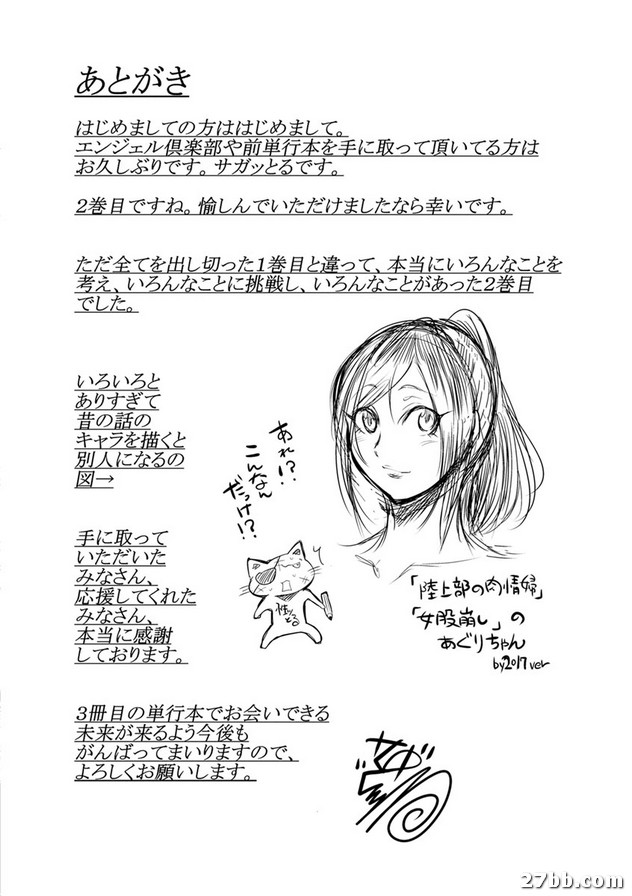 あとがき
はじめましての方ははじめまして。
エンジェル倶楽部や前単行本を手に取って頂いてる方は
お久しぶりです。サガッとるです。
2巻目ですね。愉しんでいただけましたなら幸いです。
ただ全てを出し切った1巻目と違って、本当にいろんなことを
考え、いろんなことに挑戦し、いろんなことがあった2巻目
でした。
いろいろと
ありすぎて
昔の話の
キャラを描くと
別人になるの
図→
あれ!?
こんなん
だっけ!?
「陸上部の肉情婦」
「女股崩し」の
あぐりちゃん
by2017ver
手に取って
いただいた
みなさん、
応援してくれた
みなさん、
本当に感謝
しております。
3冊目の単行本でお会いできる
未来が来るよう今後も
がんばってまいりますので、
よろしくお願いします。
27bb.com